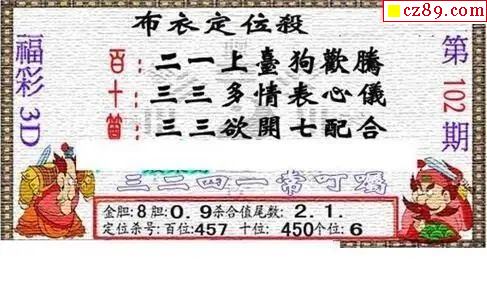 cz89.com
布衣定位殺
福彩3D
第102期
百：二一上臺狗歡騰
十：三三多情表心儀
個：三三欲開七配合
三二四一常叮嚀
金胆:8胆:0.9杀合值尾数:2.1.
定位杀号:百位:457 十位:450个位:6